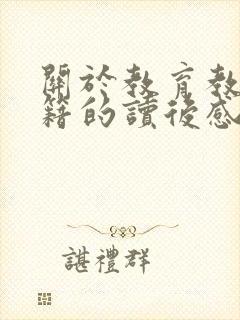 關於教育教
籍的讀後感
諶禮群